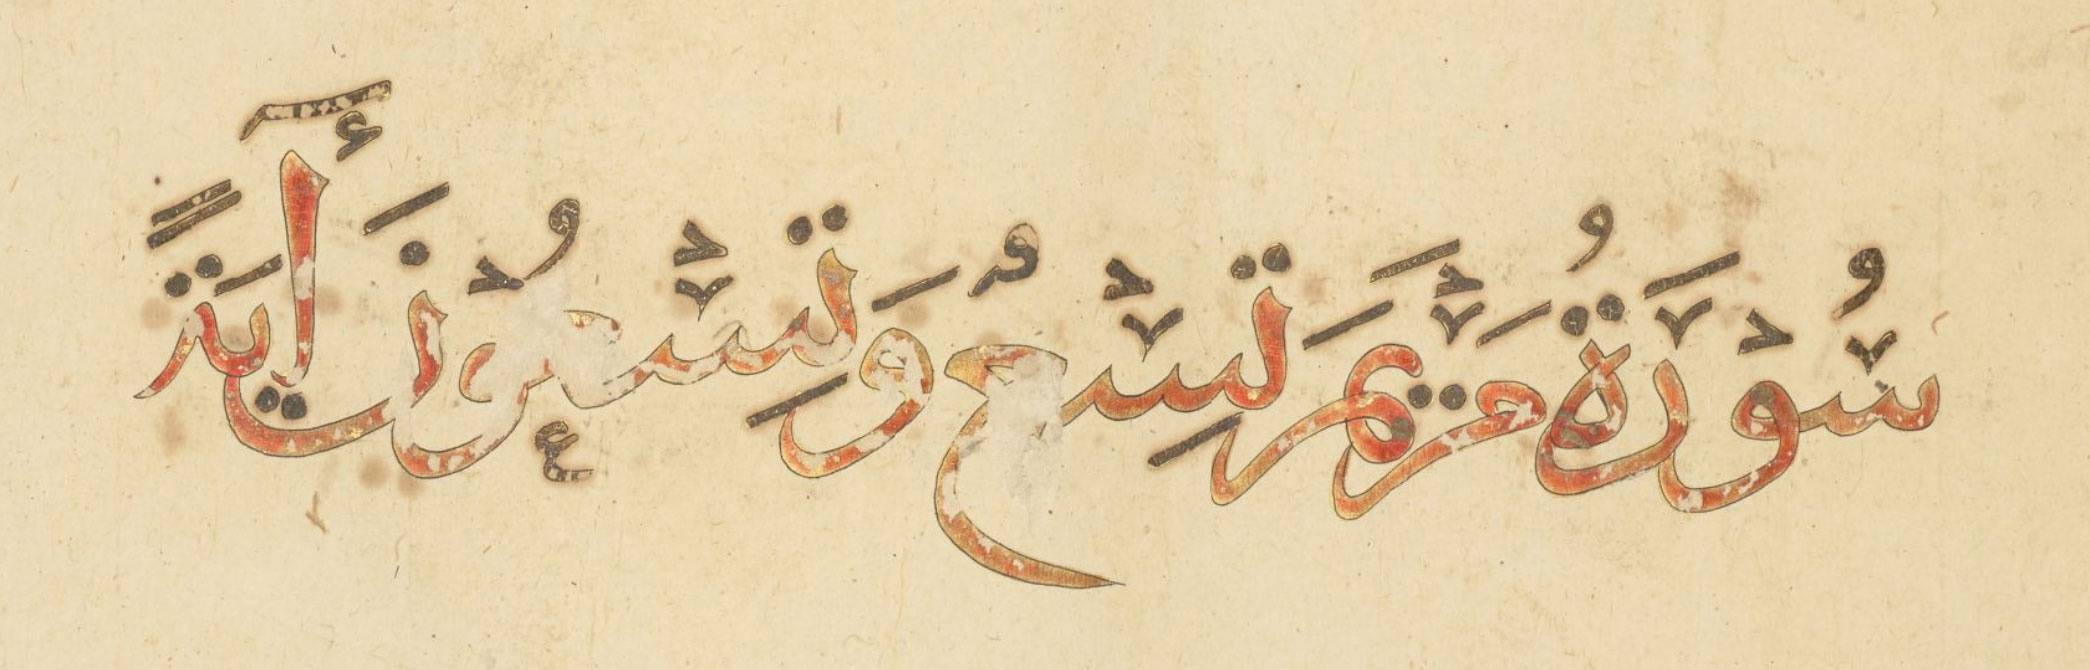 سُوْرَةُ مَرْيَمَ تِسْعٌ وَتِسْعُوْنَ أٓيَةً